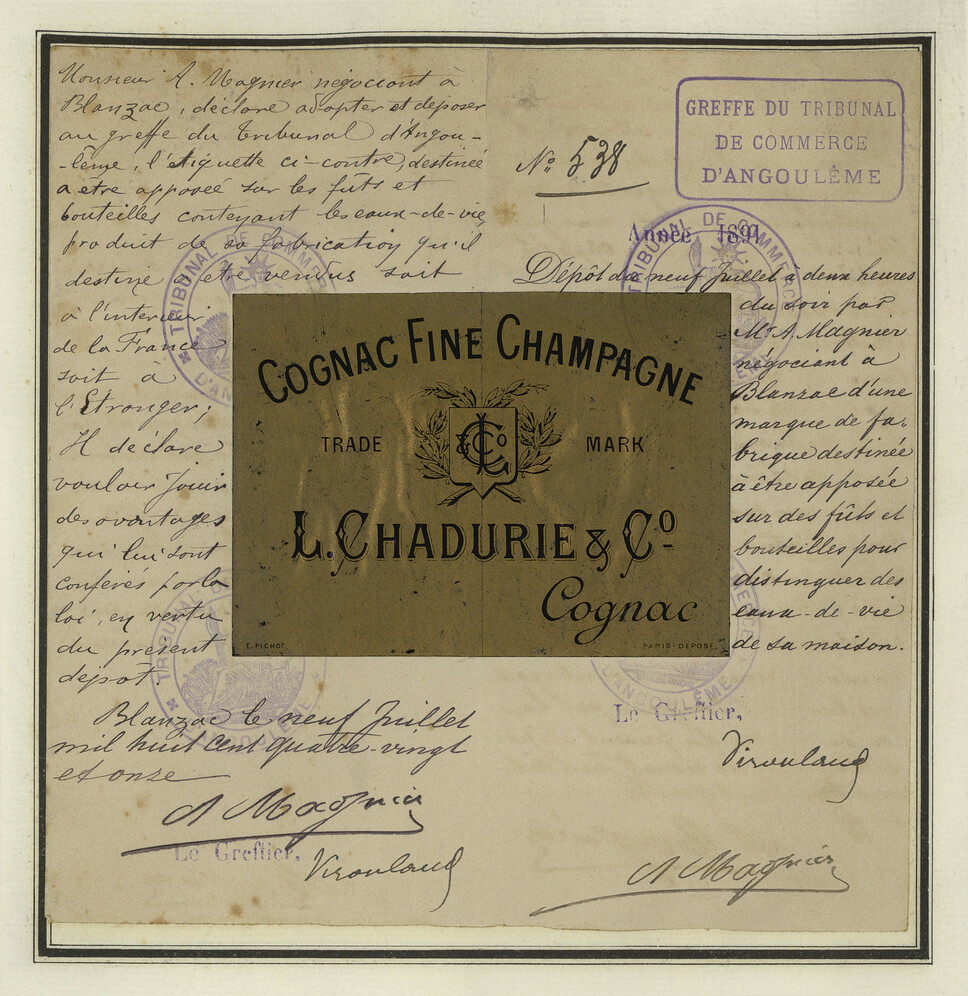 Monsieur A. Magnier négociant à
Blanzac, déclare adopter et déposer
au greffe du tribunal d'Angou-
-lême, l'étiquette ci-contre, destinée
a être apposée sur les fûts et
bouteilles contenant les eaux-de-vie,
produit de sa fabrication qu'il
destine à être vendus soit
à l'interieur
de la France
soit à
l'Etranger;
Il déclare
vouloir Jouir
des avantages
qui lui sont
conférés par la
loi, en vertu
du présent
dépot.
Blanzac le neuf Juillet
mil huit cent quatre-vingt
et onze
A Magnier
Le Greffier,
Viroulaud
GREFFE DU TRIBUNAL
DE COMMERCE
D'ANGOULÊME
No 538
Année 1891
Dépôt du neuf Juillet à deux heures
du soir par
Mr A. Magnier
négociant à
Blanzac d'une
marque de fa-
brique destinée
à être apposée
sur des fûts et
bouteilles pour
distinguer des
eaux-de-vie
de sa maison.
Le Greffier,
Viroulaud
A Magnier
COGNAC FINE CHAMPAGNE
TRADE MARK
& Co
L. CHADURIE & Co
Cognac
E. PICHOT PARIS-DÉPOSÉ
TRIBUNAL DE COMMERCE
D'ANGOULÊME